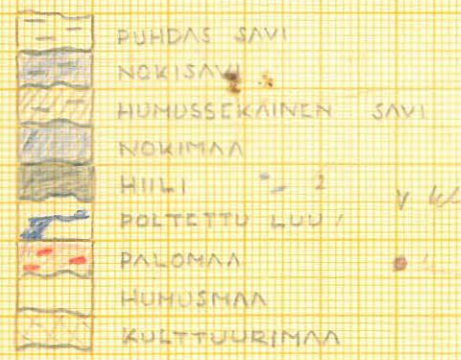 PUHDAS SAVI
NOKISAVI
HUMUSSEKAINEN SAVI
NOKIMAA
HIILI
POLTETTU LUU
PALOMAA
HUMUSMAA
KULTTUURIMAA